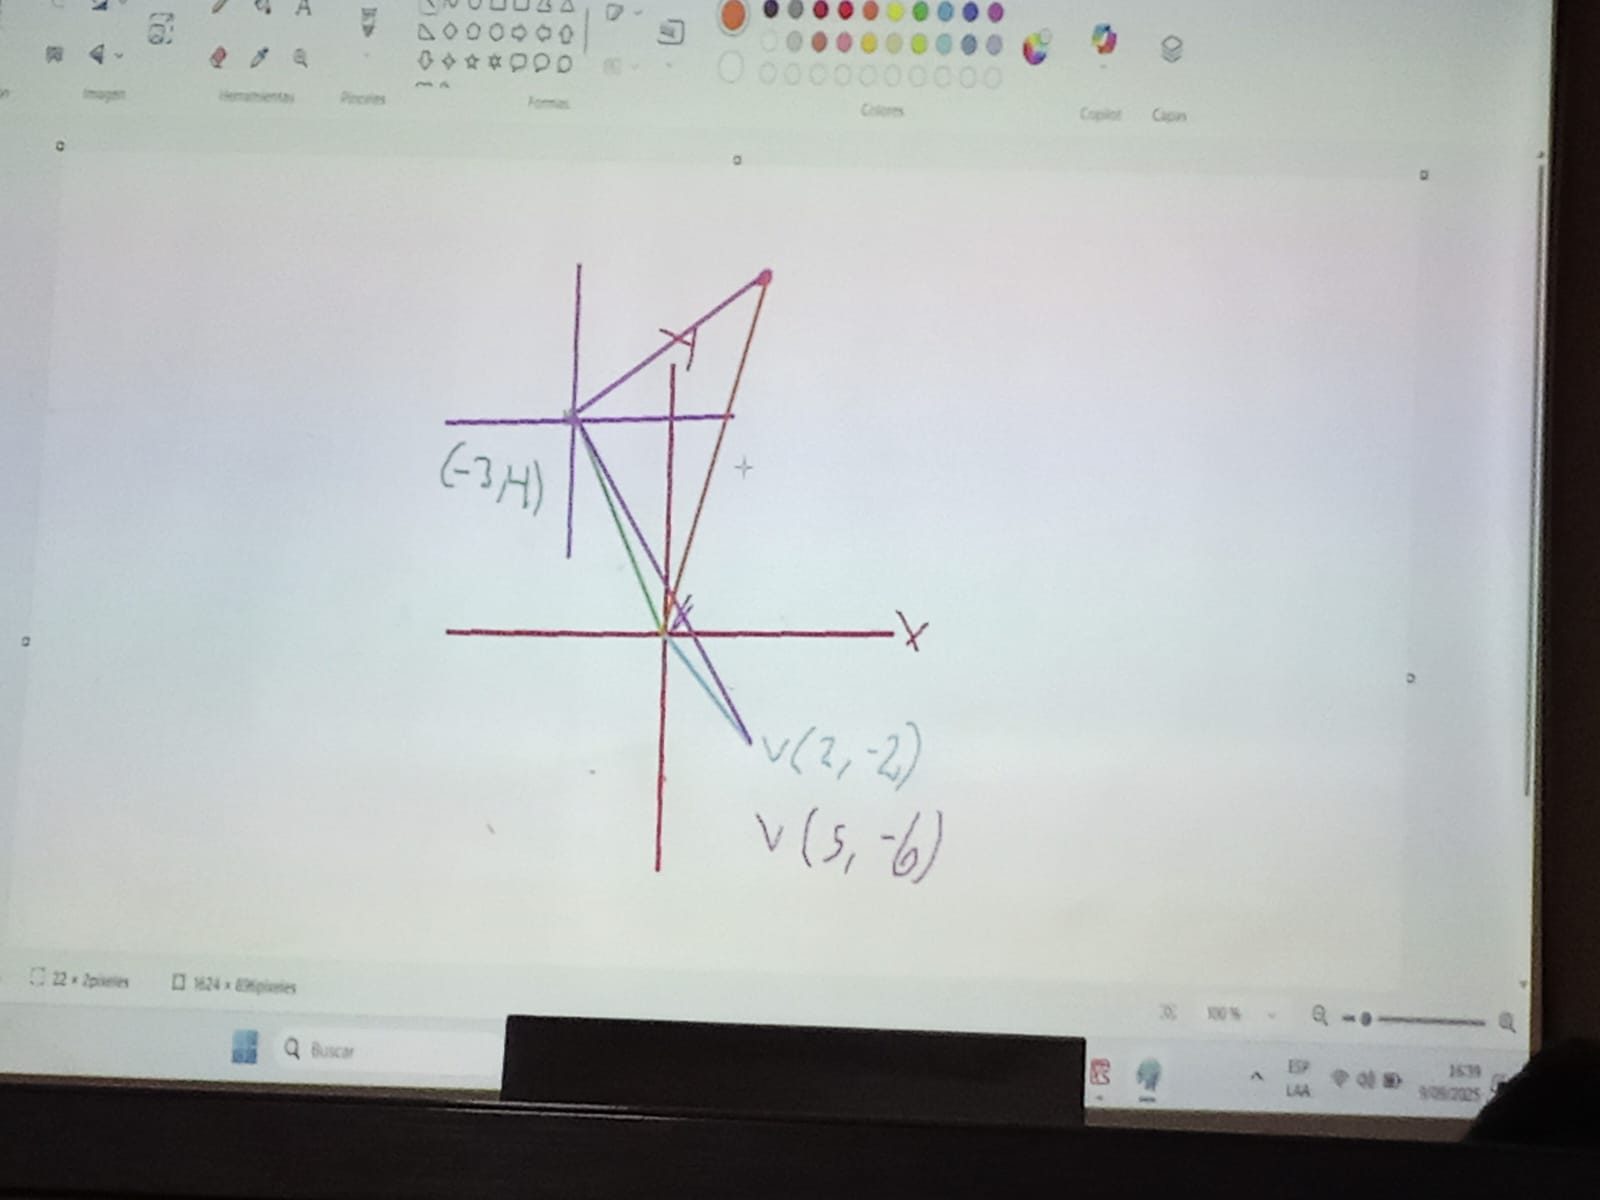 A
Imagen
Herramientas
Pinceles
Formas
Colores
Copilot
Capas
y
(-3,4)
X
v(2,-2)
v(5,-6)
1624 × 896píxeles
100 %
Buscar
ESP
LAA
16:39
9/09/2025